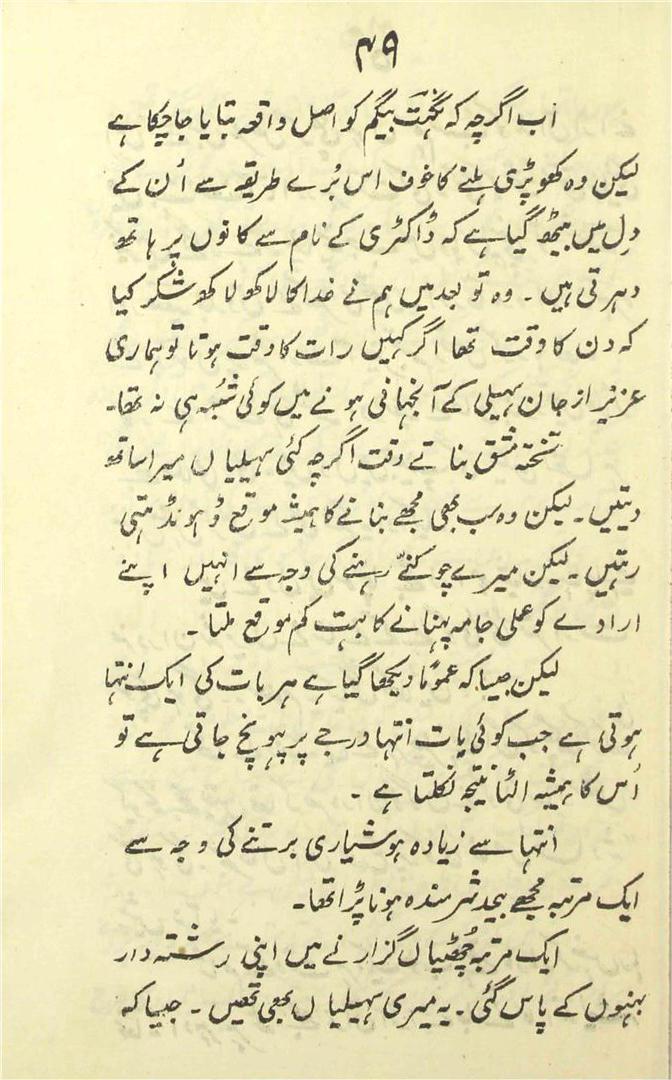 ۴۹
اب اگرچہ کہ نگہت بیگم کو اصل واقعہ بتایا جا چکا ہے
لیکن وہ کھوپڑی ہلنے کا خوف اس بُرے طریقہ سے اُن کے
دِل میں بیٹھ گیا ہے کہ ڈاکٹری کے نام سے کانوں پر ہاتھ
دہرتی ہیں ۔ وہ تو بعد میں ہم نے خدا کا لاکھ لاکھ شکر کیا
کہ دن کا وقت تھا اگر کہیں رات کا وقت ہوتا تو ہماری
عزیز از جان سہیلی کے آنجہانی ہونے میں کوئی شُبہ ہی نہ تھا۔
تختہ مشق بناتے وقت اگرچہ کئی سہیلیاں میرا ساتھ
دیتیں ۔ لیکن وہ سب بھی مجھے بنانے کا ہمیشہ موقع ڈہونڈہتی
رہتیں ۔ لیکن میرے چوکنّے رہنے کی وجہ سے انہیں اپنے
ارادے کو عملی جامہ پہنانے کا بہت کم موقع ملتا ۔
لیکن جیسا کہ عموماً دیکھا گیا ہے ہر بات کی ایک انتہا
ہوتی ہے جب کوئی بات انتہا درجے پر پہونچ جاتی ہے تو
اُس کا ہمیشہ الٹا نتیجہ نکلتا ہے ۔
انتہا سے زیادہ ہوشیاری برتنے کی وجہ سے
ایک مرتبہ مجھے بیحد شرمندہ ہونا پڑا تھا۔
ایک مرتبہ چُھٹیاں گزارنے میں اپنی رشتہ دار
بہنوں کے پاس گئی ۔ یہ میری سہیلیاں بھی تھیں ۔ جیسا کہ